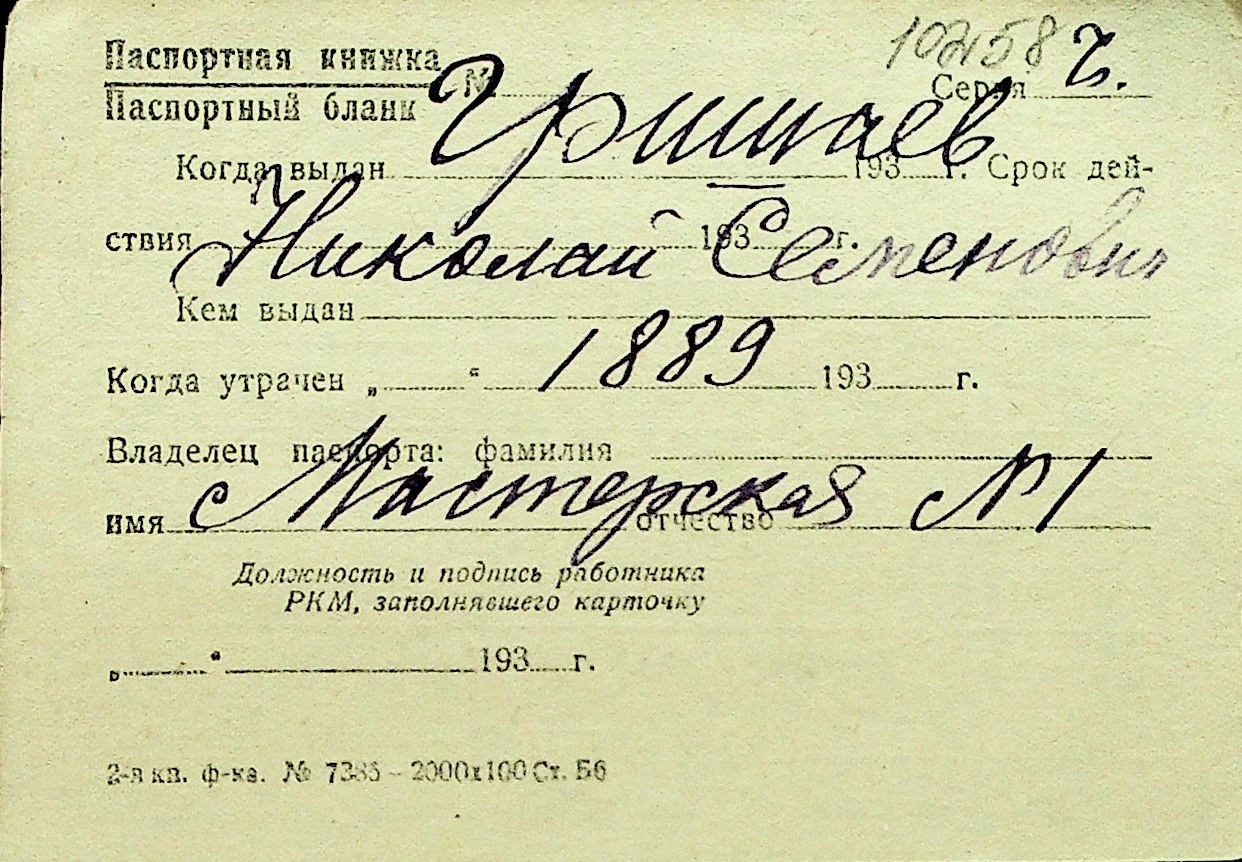 10458 ч.
Паспортная книжка
№ Серия
Паспортный бланк
Гришаев
Когда выдан 193 г. Срок дей-
ствия 193 г.
Николай Семенович
Кем выдан
1889
Когда утрачен „ “ 193 г.
Владелец паспорта: фамилия
Мастерская №1
имя отчество
Должность и подпись работника
РКМ, заполнявшего карточку
„ “ 193 г.
2-я кв. ф-ка. № 7385 - 2000х100 Ст. Б6